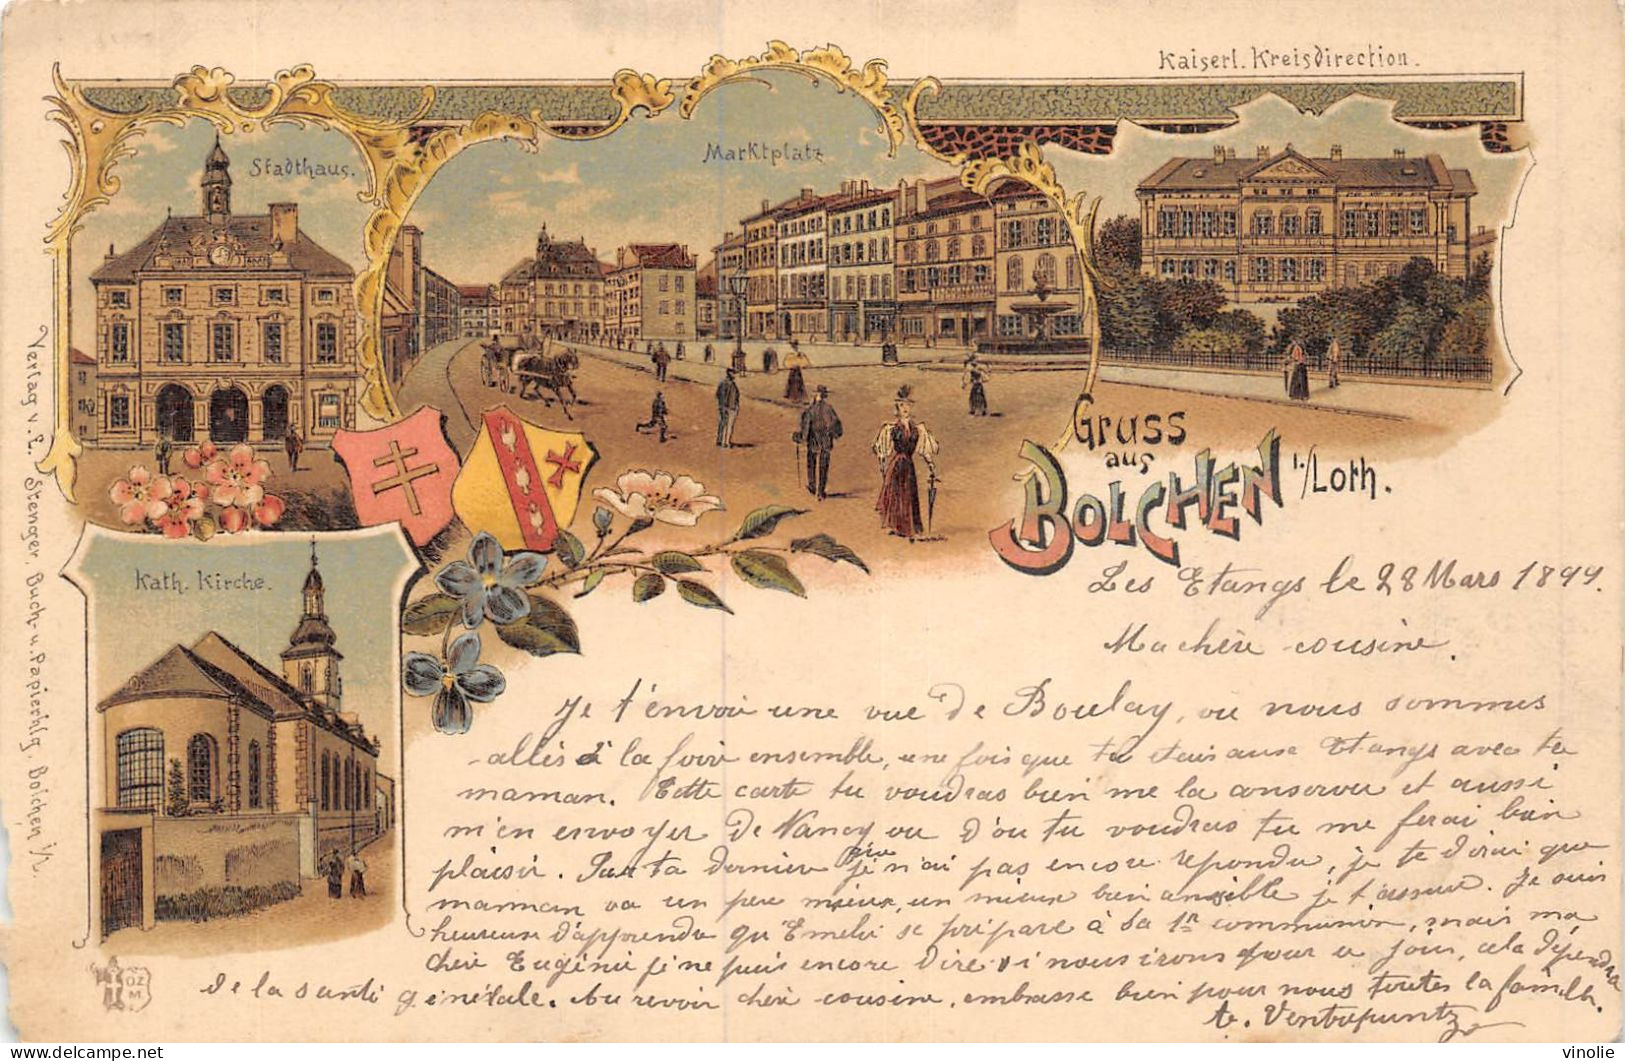 Kaiserl. Kreisdirection.
Stadthaus.
Marktplatz
Gruss
aus
BOLCHEN i./Loth.
Kath. Kirche.
Verlag v. E. Stenger, Buch- u. Papierhlg. Bolchen i/L.
Les Etangs le 28 Mars 1899.
Ma chère cousine.
Je t'envoie une vue de Boulay, où nous sommes
allés à la foire ensemble, une fois que tu étais aux Etangs avec ta
maman. Cette carte tu voudras bien me la conserver et aussi
m'en envoyer de Nancy ou d'où tu voudras tu me ferai bien
plaisir. Sur ta dernière que je n'ai pas encore repondu, je te dirai que
maman va un peu mieux, un mieux bien sensible je t'assure. Je suis
heureuse d'apprendre qu'Emélie se prépare à sa 1re communion, mais ma
chère Eugénie je ne puis encore dire si nous irons pour ce jour, cela dépendra
de la santé générale. Au revoir chère cousine, embrasse bien pour nous toutes la famille.
DZ
M
vinolie
delcampe.net